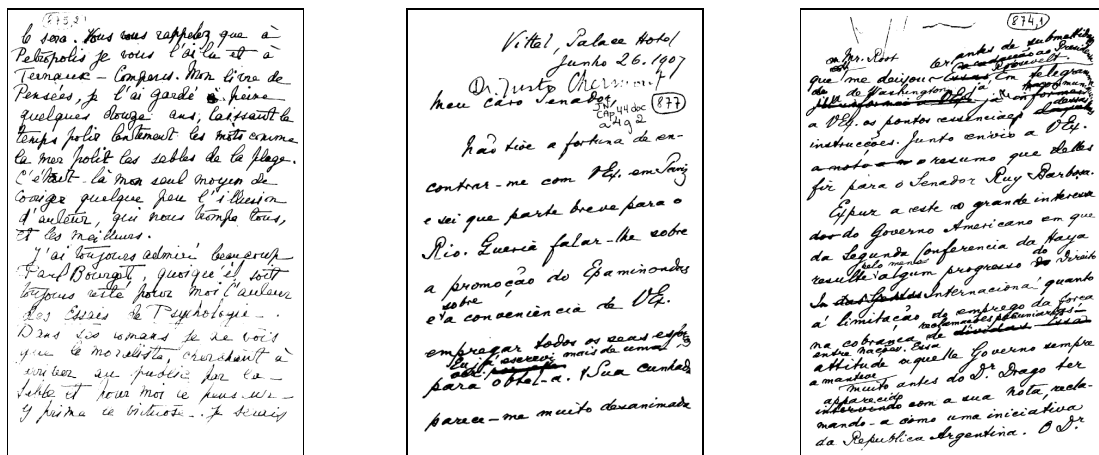 875,2
le sera. Vous vous rappelez que à
Petropolis je vous l'ai lu et à
Ternaux-Compans. Mon livre de
Pensées, je l'ai gardé à peine
quelques douze ans, laissant le
temps polir lentement les mots comme
la mer polit les sables de la plage.
C'était là mon seul moyen de
corriger quelque peu l'illusion
d'auteur, qui nous trompe tous,
et les meilleurs.
J'ai toujours admiré beaucoup
Paul Bourget, quoiqu'il soit
toujours resté pour moi l'auteur
des Essais de Psychologie.
Dans ses romans je ne vois
que le moraliste, cherchant à
arriver au public par la
fable et pour moi le penseur
y prime le virtuose. Je serais
Vittel, Palace Hotel
Junho 26. 1907
Dr. Justo Chermont
Meu caro Senador
877
CAP 44 doc
Não tive a fortuna de en-
contrar-me com VEx. em Pariz
e sei que parte breve para o
Rio. Queria falar-lhe sobre
a promoção do Epaminondas
sobre
e a conveniencia de VEx.
empregar todos os seus esfor
Eu já escrevi mais de uma
para obtel-a. Sua cunhada
parece-me muito desanimada
874,1
Mr. Root antes de submetti
que me deixou ler Roosevelt. Em telegram
de Washington já
a VEx. os pontos essenciaes
instrucções. Junto envio a VEx.
o resumo que dellas
fiz para o Senador Ruy Barbosa.
Expuz a este o grande interesse
do Governo Americano em que
da Segunda Conferencia da Haya
pelo menos do
resulte algum progresso Direito
Internacional quanto
á limitação do emprego da força
reclamações pecuniarias
na cobrança de dividas
entre nações. Essa
attitude aquelle Governo sempre
a manteve
muito antes do Dr. Drago ter
apparecido
com a sua nota, recla-
mando-a como uma iniciativa
da Republica Argentina. O Dr.